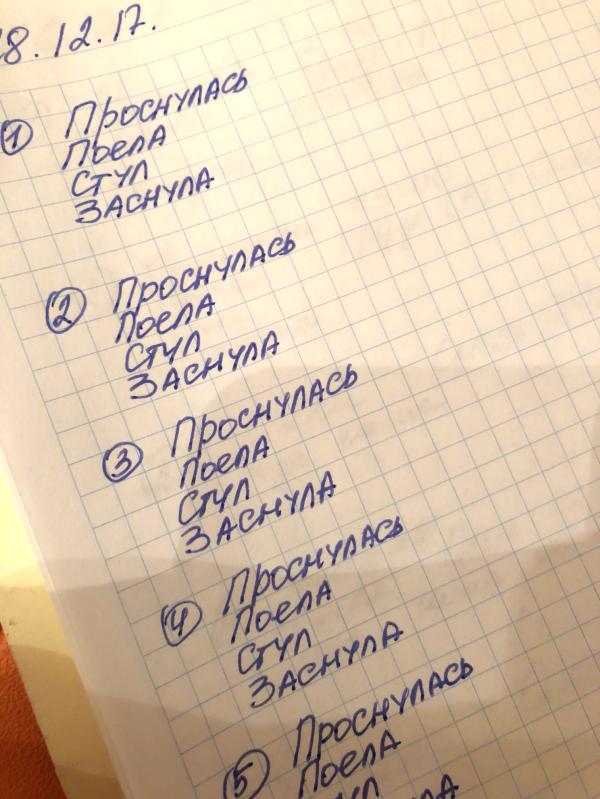 8.12.17.
① Проснулась
Поела
Стул
Заснула
② Проснулась
Поела
Стул
Заснула
③ Проснулась
Поела
Стул
Заснула
④ Проснулась
Поела
Стул
Заснула
⑤ Проснулась
Поела